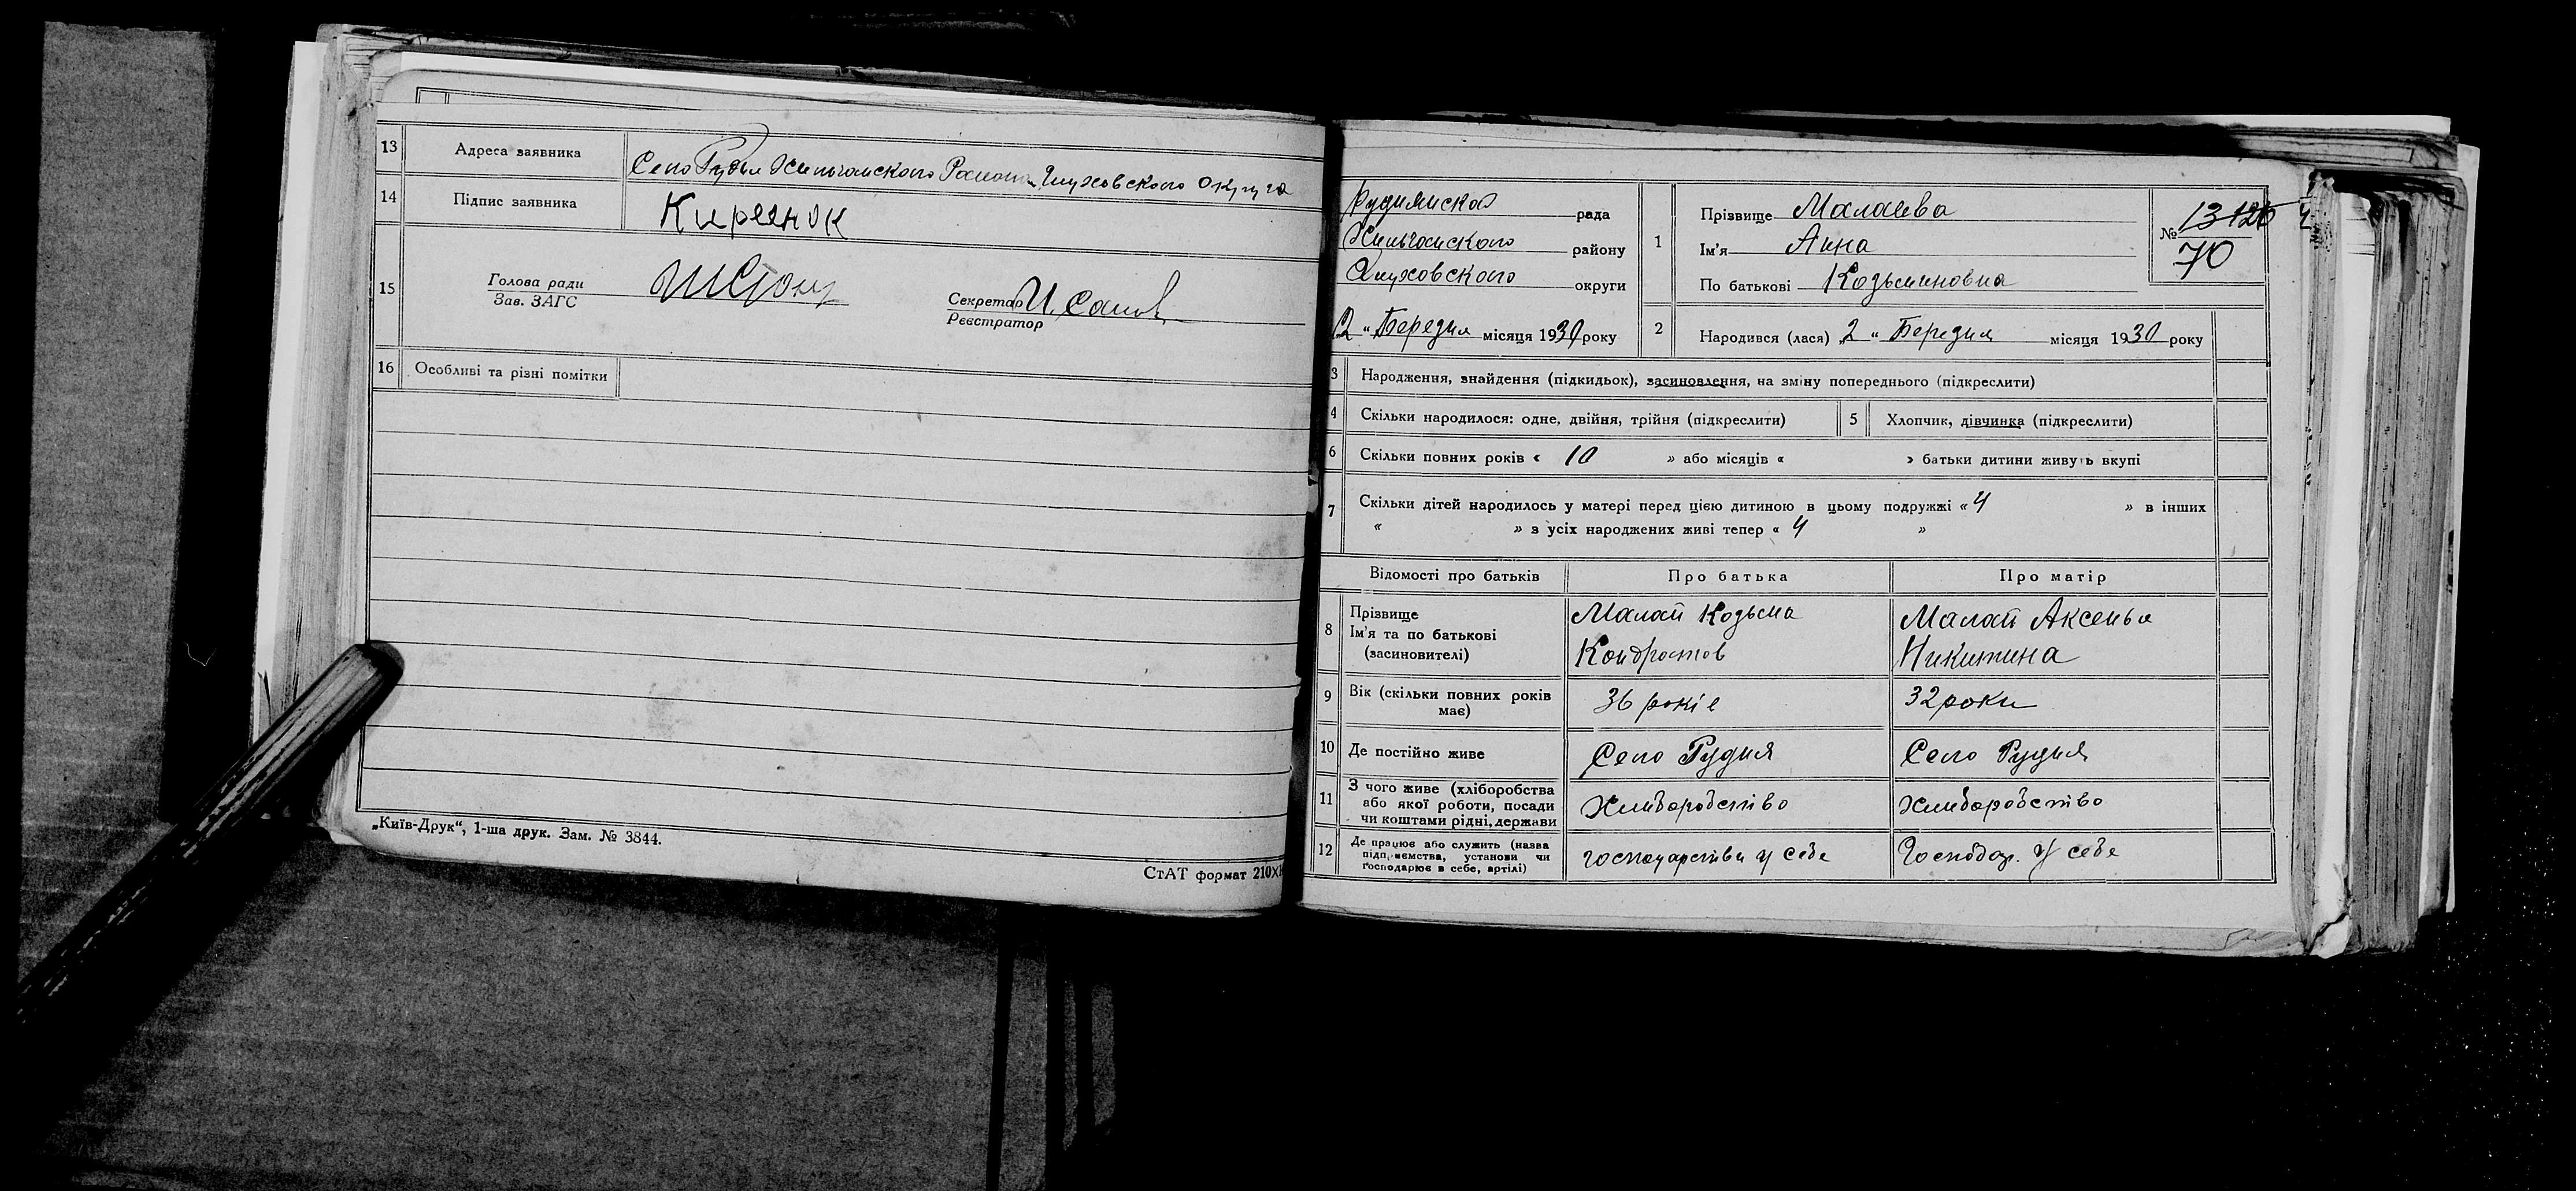 13 Адреса заявника Село Рудня Хильчанского Района Глуховского Округа
14 Підпис заявника Киреенок
15 Голова ради
Зав. ЗАГС
Секретар
Реєстратор
16 Особливі та різні помітки
„Київ-Друк“, 1-ша друк. Зам. № 3844.
СтАТ формат 210×
рада
Хильчанского району
Глуховского округи
2 „ Березня місяця 1930 року
1 Прізвище Малаева
Ім'я Анна
По батькові Козьминовна
№ 13
70
2 Народився (лася) „2 “ Березня місяця 1930 року
3 Народження, знайдення (підкидьок), засиновлення, на зміну попереднього (підкреслити)
4 Скільки народилося: одне, двійня, трійня (підкреслити) 5 Хлопчик, дівчинка (підкреслити)
6 Скільки повних років « 10 » або місяців « » батьки дитини живуть вкупі
7 Скільки дітей народилось у матері перед цією дитиною в цьому подружжі « 4 » в інших
« » з усіх народжених живі тепер « 4 »
Відомості про батьків Про батька Про матір
8 Прізвище Малай Козьма Малай Аксенья
Ім'я та по батькові
(засиновителі) Кондратов Никитина
9 Вік (скільки повних років має) 36 років 32 роки
10 Де постійно живе Село Рудня Село Рудня
11 З чого живе (хліборобства
або якої роботи, посади Хлиборобство хлиборобство
чи коштами рідні, держави
12 Де працює або служить (назва
підприємства, установи чи господарстви у себе Господар. У себе
господарює в себе, артілі)